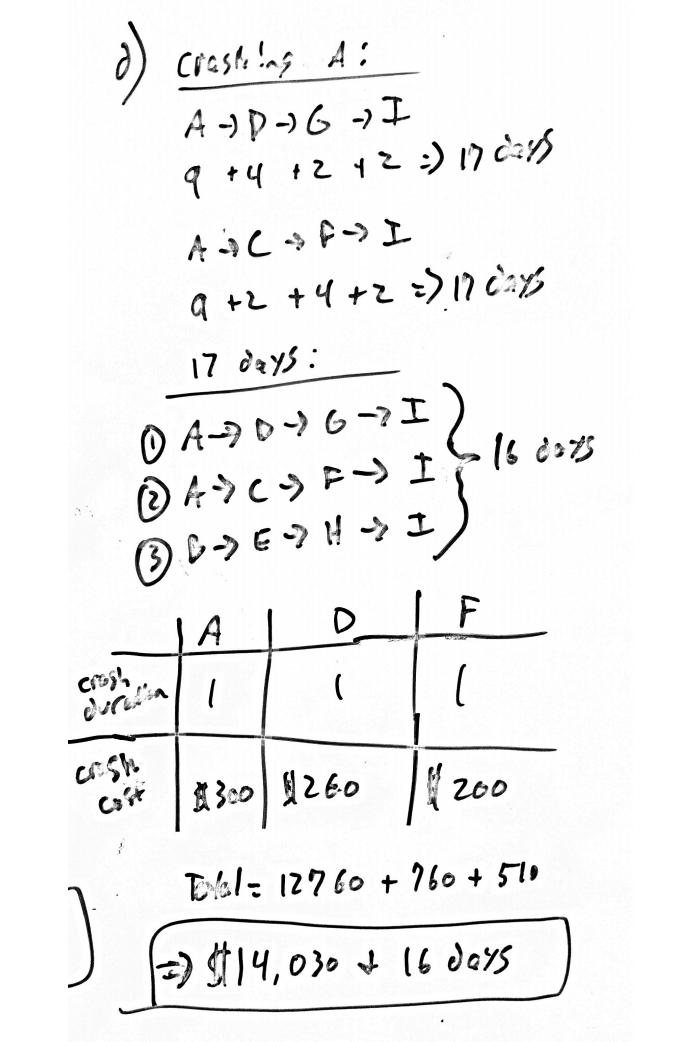 d) Crashing A:
A → D → G → I
9 + 4 + 2 + 2 => 17 days
A → C → F → I
9 + 2 + 4 + 2 => 17 days
17 days:
① A → D → G → I
② A → C → F → I } 16 days
③ B → E → H → I
A D F
crash duration 1 1 1
crash cost $300 $260 $200
Total = 12760 + 760 + 510
=> $14,030 + 16 days